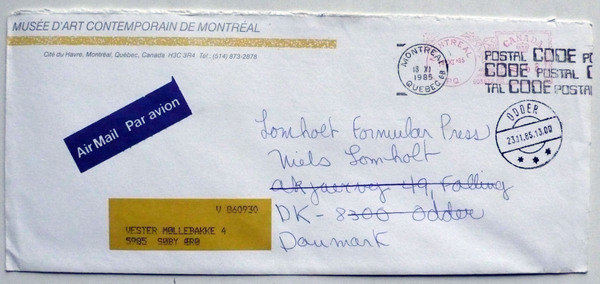 MUSÉE D'ART CONTEMPORAIN DE MONTRÉAL
Cité du Havre, Montréal, Québec, Canada H3C 3R4 Tel.: (514) 873-2878
MONTREAL
18 XI
1985
QUEBEC 68
MONTREAL
CANADA
POSTAL CODE PO
CODE POSTAL C
TAL CODE POSTAL
ODDER
23.11.85.13.00
Air Mail Par avion
Lomholt Formular Press
Niels Lomholt
akjaervej 49, Falling
DK - 8300 Odder
Danmark
V 860930
VESTER MØLLEBAKKE 4
5985 SØBY ÆRØ